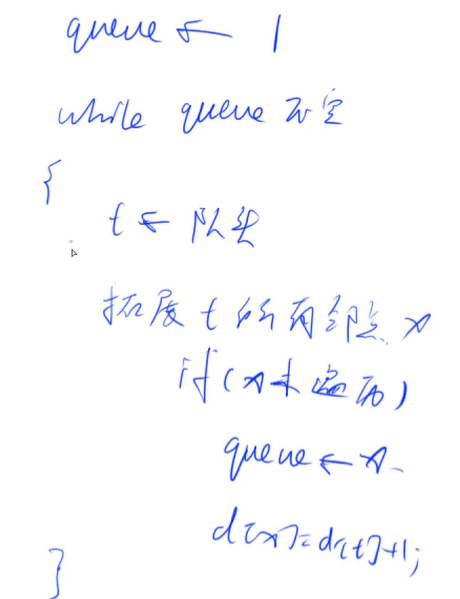 queue ← 1
while queue 不空
{
t ← 队头
拓展 t 所有邻点 x
if (x未遍历)
queue ← x
d[x]=d[t]+1;
}